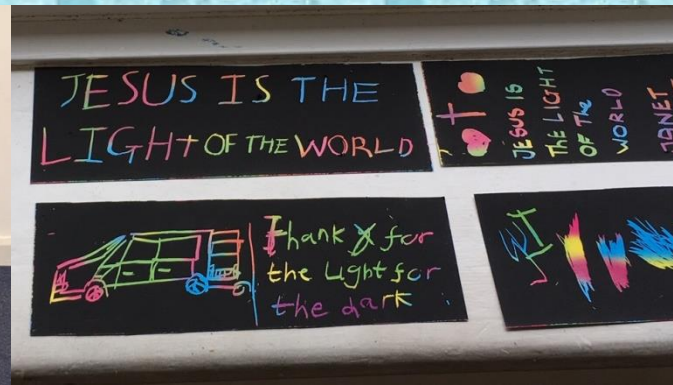 JESUS IS THE
LIGHT OF THE WORLD
JESUS IS
THE LIGHT
OF THE
WORLD
JANET
Thank for
the Light for
the dark